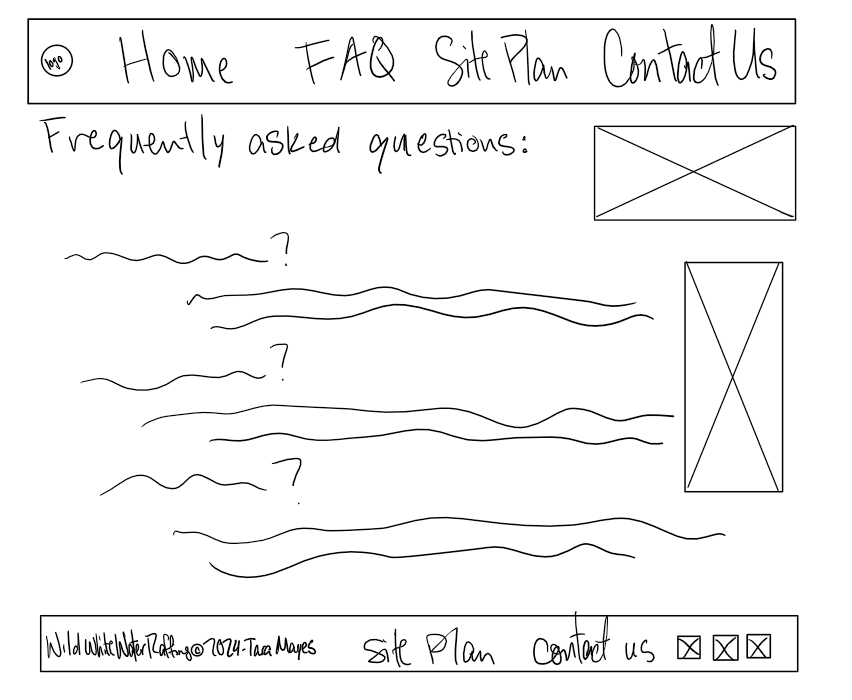 logo Home FAQ Site Plan Contact Us
Frequently asked questions:
?
?
?
Wild White Water Rafting © 2024 - Tara Mayes site Plan contact us